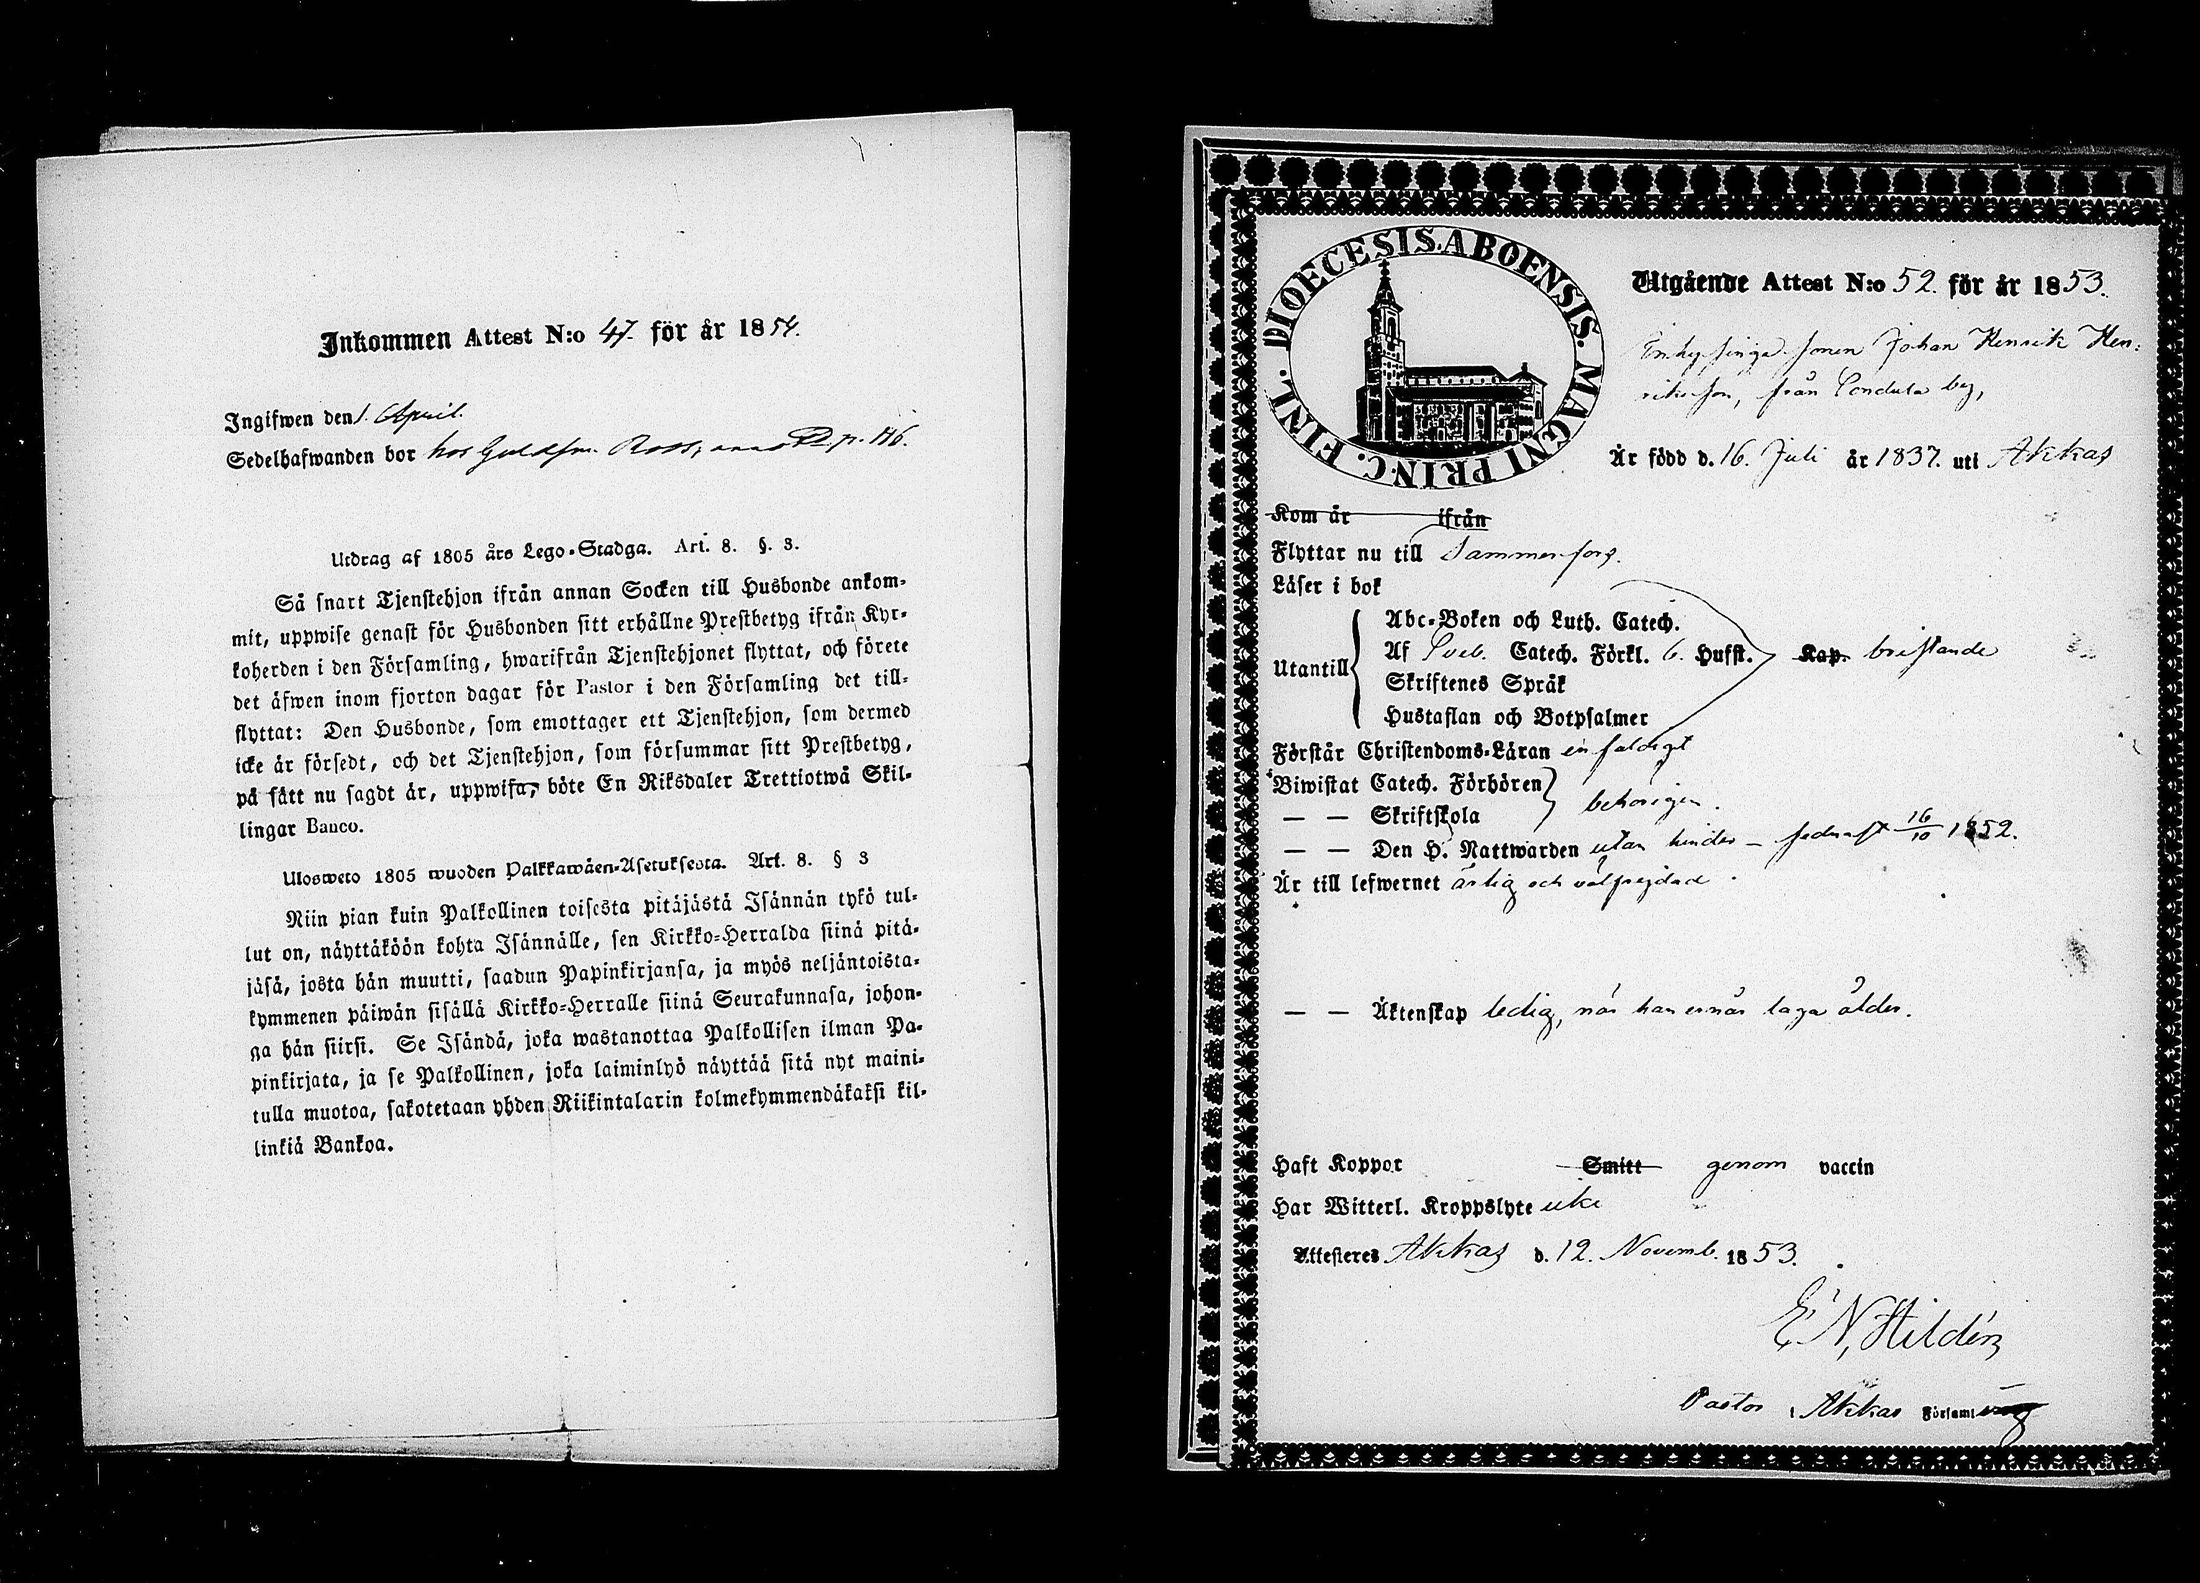 Inkommen Attest N:o 47. för år 1854.
Ingifwen den 1. April.
Sedelhafwanden bor hos Guldsm. Ross, p. 116.
Utdrag af 1805 års Lego-Stadga. Art. 8. §. 3.
Så snart Tjenstehjon ifrån annan Socken till Husbonde ankom-
mit, uppwise genast för Husbonden sitt erhållne Prestbetyg ifrån Kyr-
koherden i den Församling, hwarifrån Tjenstehjonet flyttat, och förete
det äfwen inom fjorton dagar för Pastor i den Församling det till-
flyttat: Den Husbonde, som emottager ett Tjenstehjon, som dermed
icke är försedt, och det Tjenstehjon, som försummar sitt Prestbetyg,
på sätt nu sagdt är, uppwisa, böte En Riksdaler Trettiotwå Skil-
lingar Banco.
Ulosweto 1805 wuoden Palkkawäen-Asetuksesta. Art. 8. § 3
Niin pian kuin Palkollinen toisesta pitäjästä Isännän tykö tul-
lut on, näyttäköön kohta Isännälle, sen Kirkko-Herralda siinä pitä-
jäsä, josta hän muutti, saadun Papinkirjansa, ja myös neljäntoista-
kymmenen päiwän sisällä Kirkko-Herralle siinä Seurakunnasa, johon-
ga hän siirsi. Se Isändä, joka wastanottaa Palkollisen ilman Pa-
pinkirjata, ja se Palkollinen, joka laiminlyö näyttää sitä nyt maini-
tulla muotoa, sakotetaan yhden Riikintalarin kolmekymmendäkaksi kil-
linkiä Bankoa.
DIOECESIS. ABOENSIS. MAGNI PRINC. FINL.
Utgående Attest N:o 52. för år 1853.
sonen Johan Henrik Hen-
riksson, från Condula by,
Är född d. 16. Juli år 1837. uti Akkas
Kom år ifrån
Flyttar nu till Tammerfors.
Läser i bok
Utantill
Abc-Boken och Luth. Catech.
Af Sveb. Catech. Förkl. 6. Hufst. Kap. bristande
Skriftenes Språk
Hustaflan och Botpsalmer
Förstår Christendoms-Läran enfaldigt
Biwistat Catech. Förhören
— — Skriftskola behörigen.
— — Den H. Nattwarden utan hinder – sednast 16/10 1852.
Är till lefwernet ärlig och välfrejdad.
— — Äktenskap ledig, när han ernår laga ålder.
Haft Koppor Smitt genom vaccin
Har Witterl. Kroppslyte icke
Attesteres Akkas d. 12. Novemb. 1853.
E. N. Hildén
Pastor i Akkas Församling